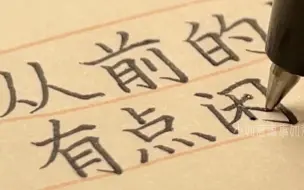 从前的
有点闲